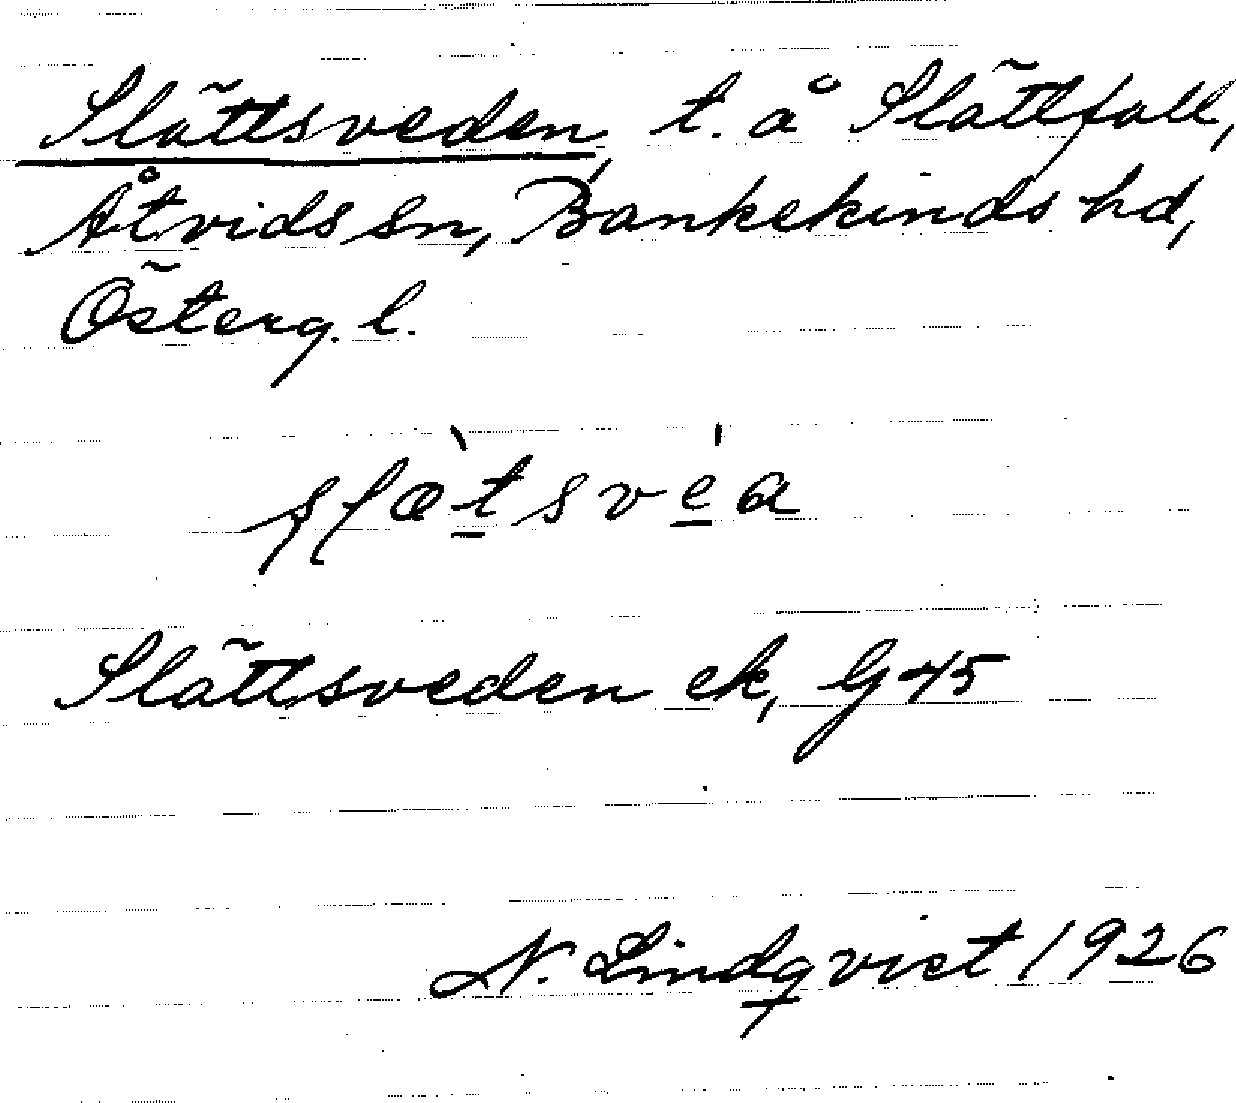 Slättsveden, t. å Slättfall,
Åtvids sn, Bankekinds hd,
Österg. l.
slæ̀tsvéa
Slättsveden ek, G 45
N. Lindqvist 1926